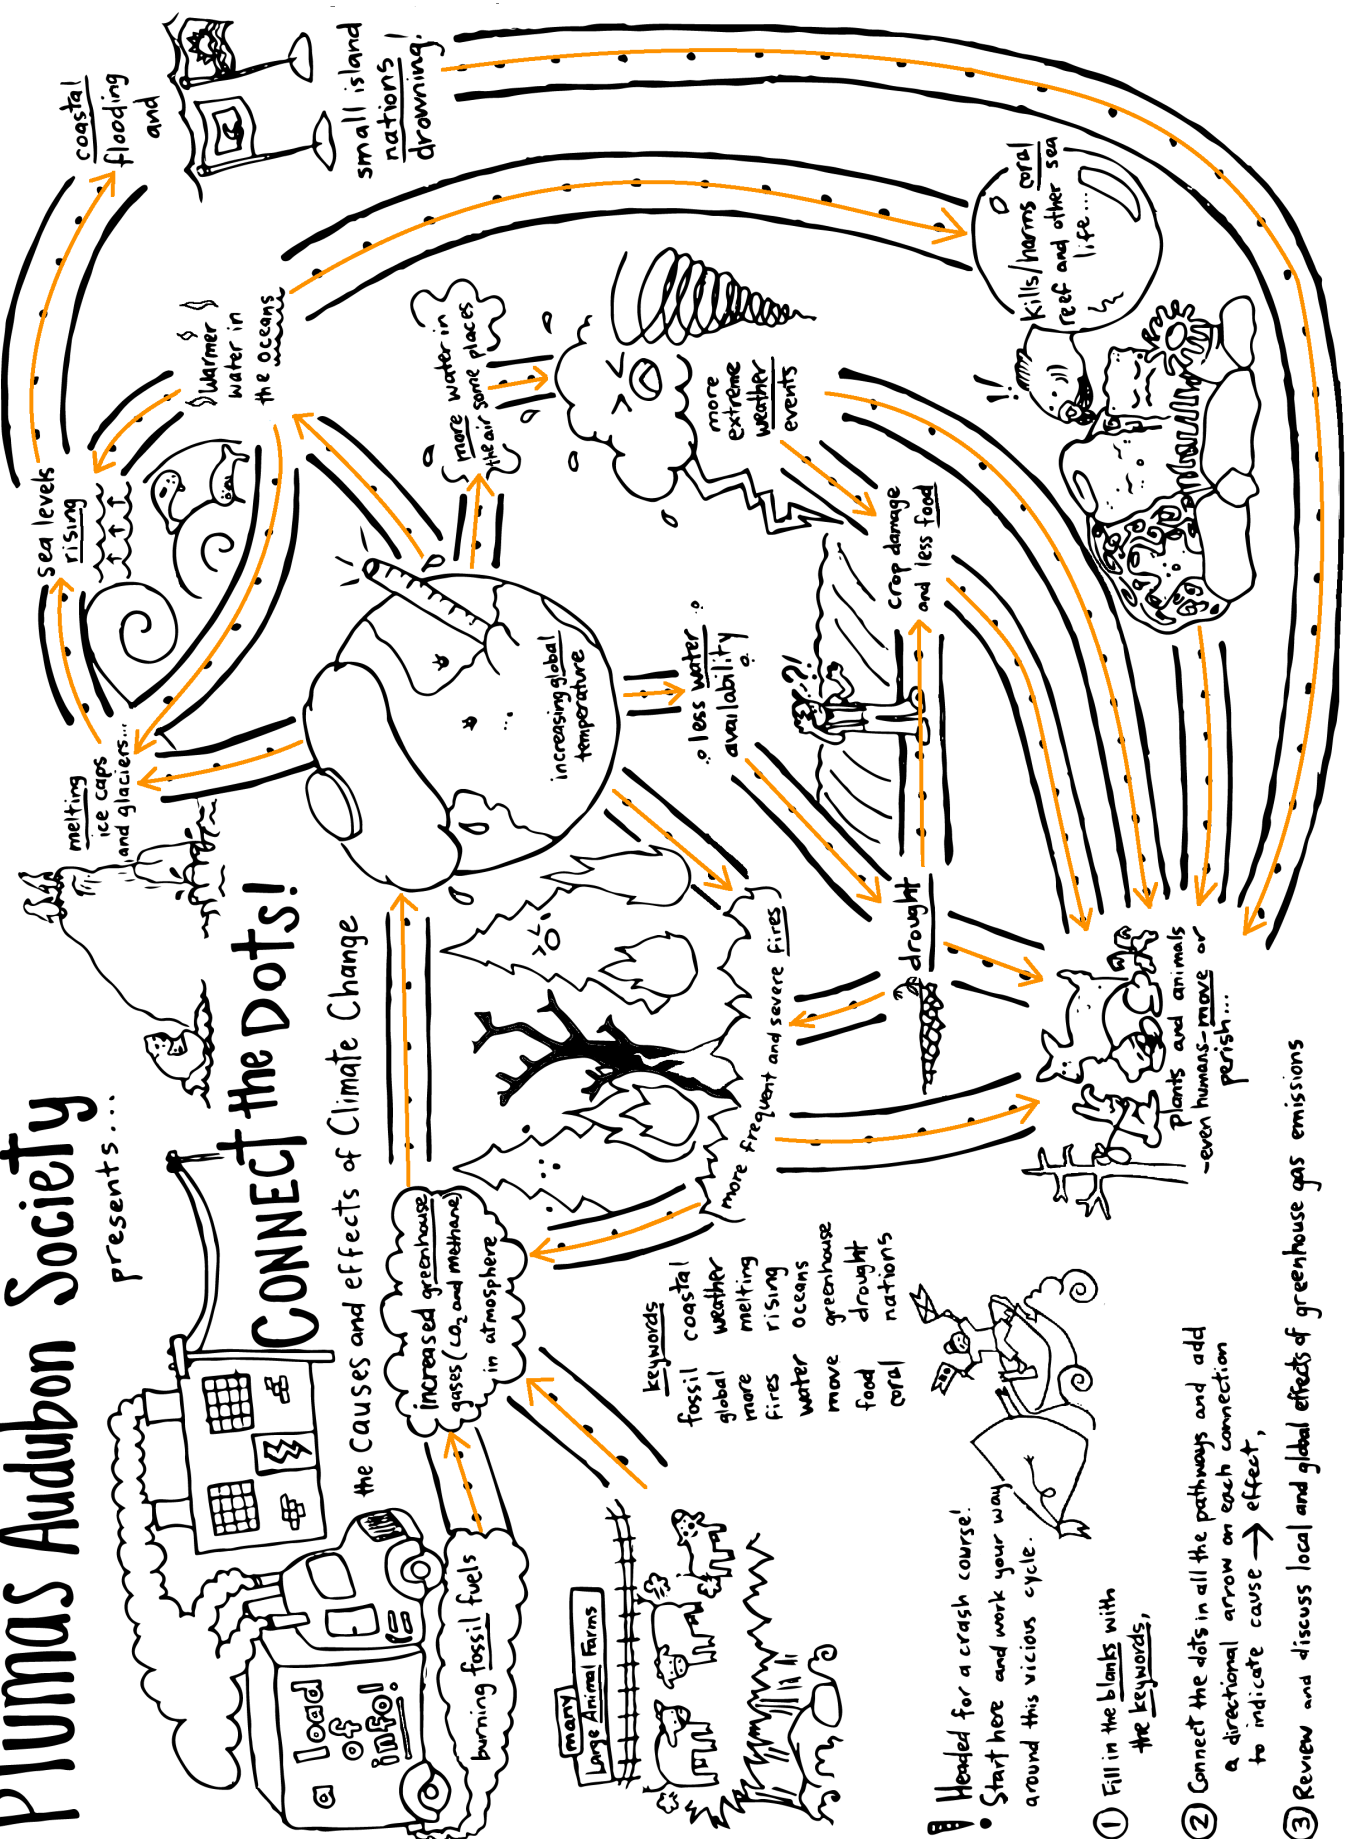 Plumas Audubon Society
presents...
CONNECT the DOTS!
the causes and effects of Climate Change
a load
of
info!
burning fossil fuels
many
Large Animal Farms
increased greenhouse
gases (CO2 and methane)
in atmosphere
increasing global
temperature
melting
ice caps
and glaciers...
sea levels
rising
warmer
water in
the oceans
coastal
flooding
and
small island
nations
drowning!
more water in
the air some places
more
extreme
weather
events
less water
availability
?!
crop damage
and less food
drought
more frequent and severe fires
!!
kills/harms coral
reef and other sea
life...
plants and animals
-even humans-move or
perish...
keywords
fossil coastal
global weather
more melting
fires rising
water oceans
move greenhouse
food drought
coral nations
! Headed for a crash course!
Start here and work your way
around this vicious cycle.
① Fill in the blanks with
the keywords,
② Connect the dots in all the pathways and add
a directional arrow on each connection
to indicate cause → effect,
③ Review and discuss local and global effects of greenhouse gas emissions